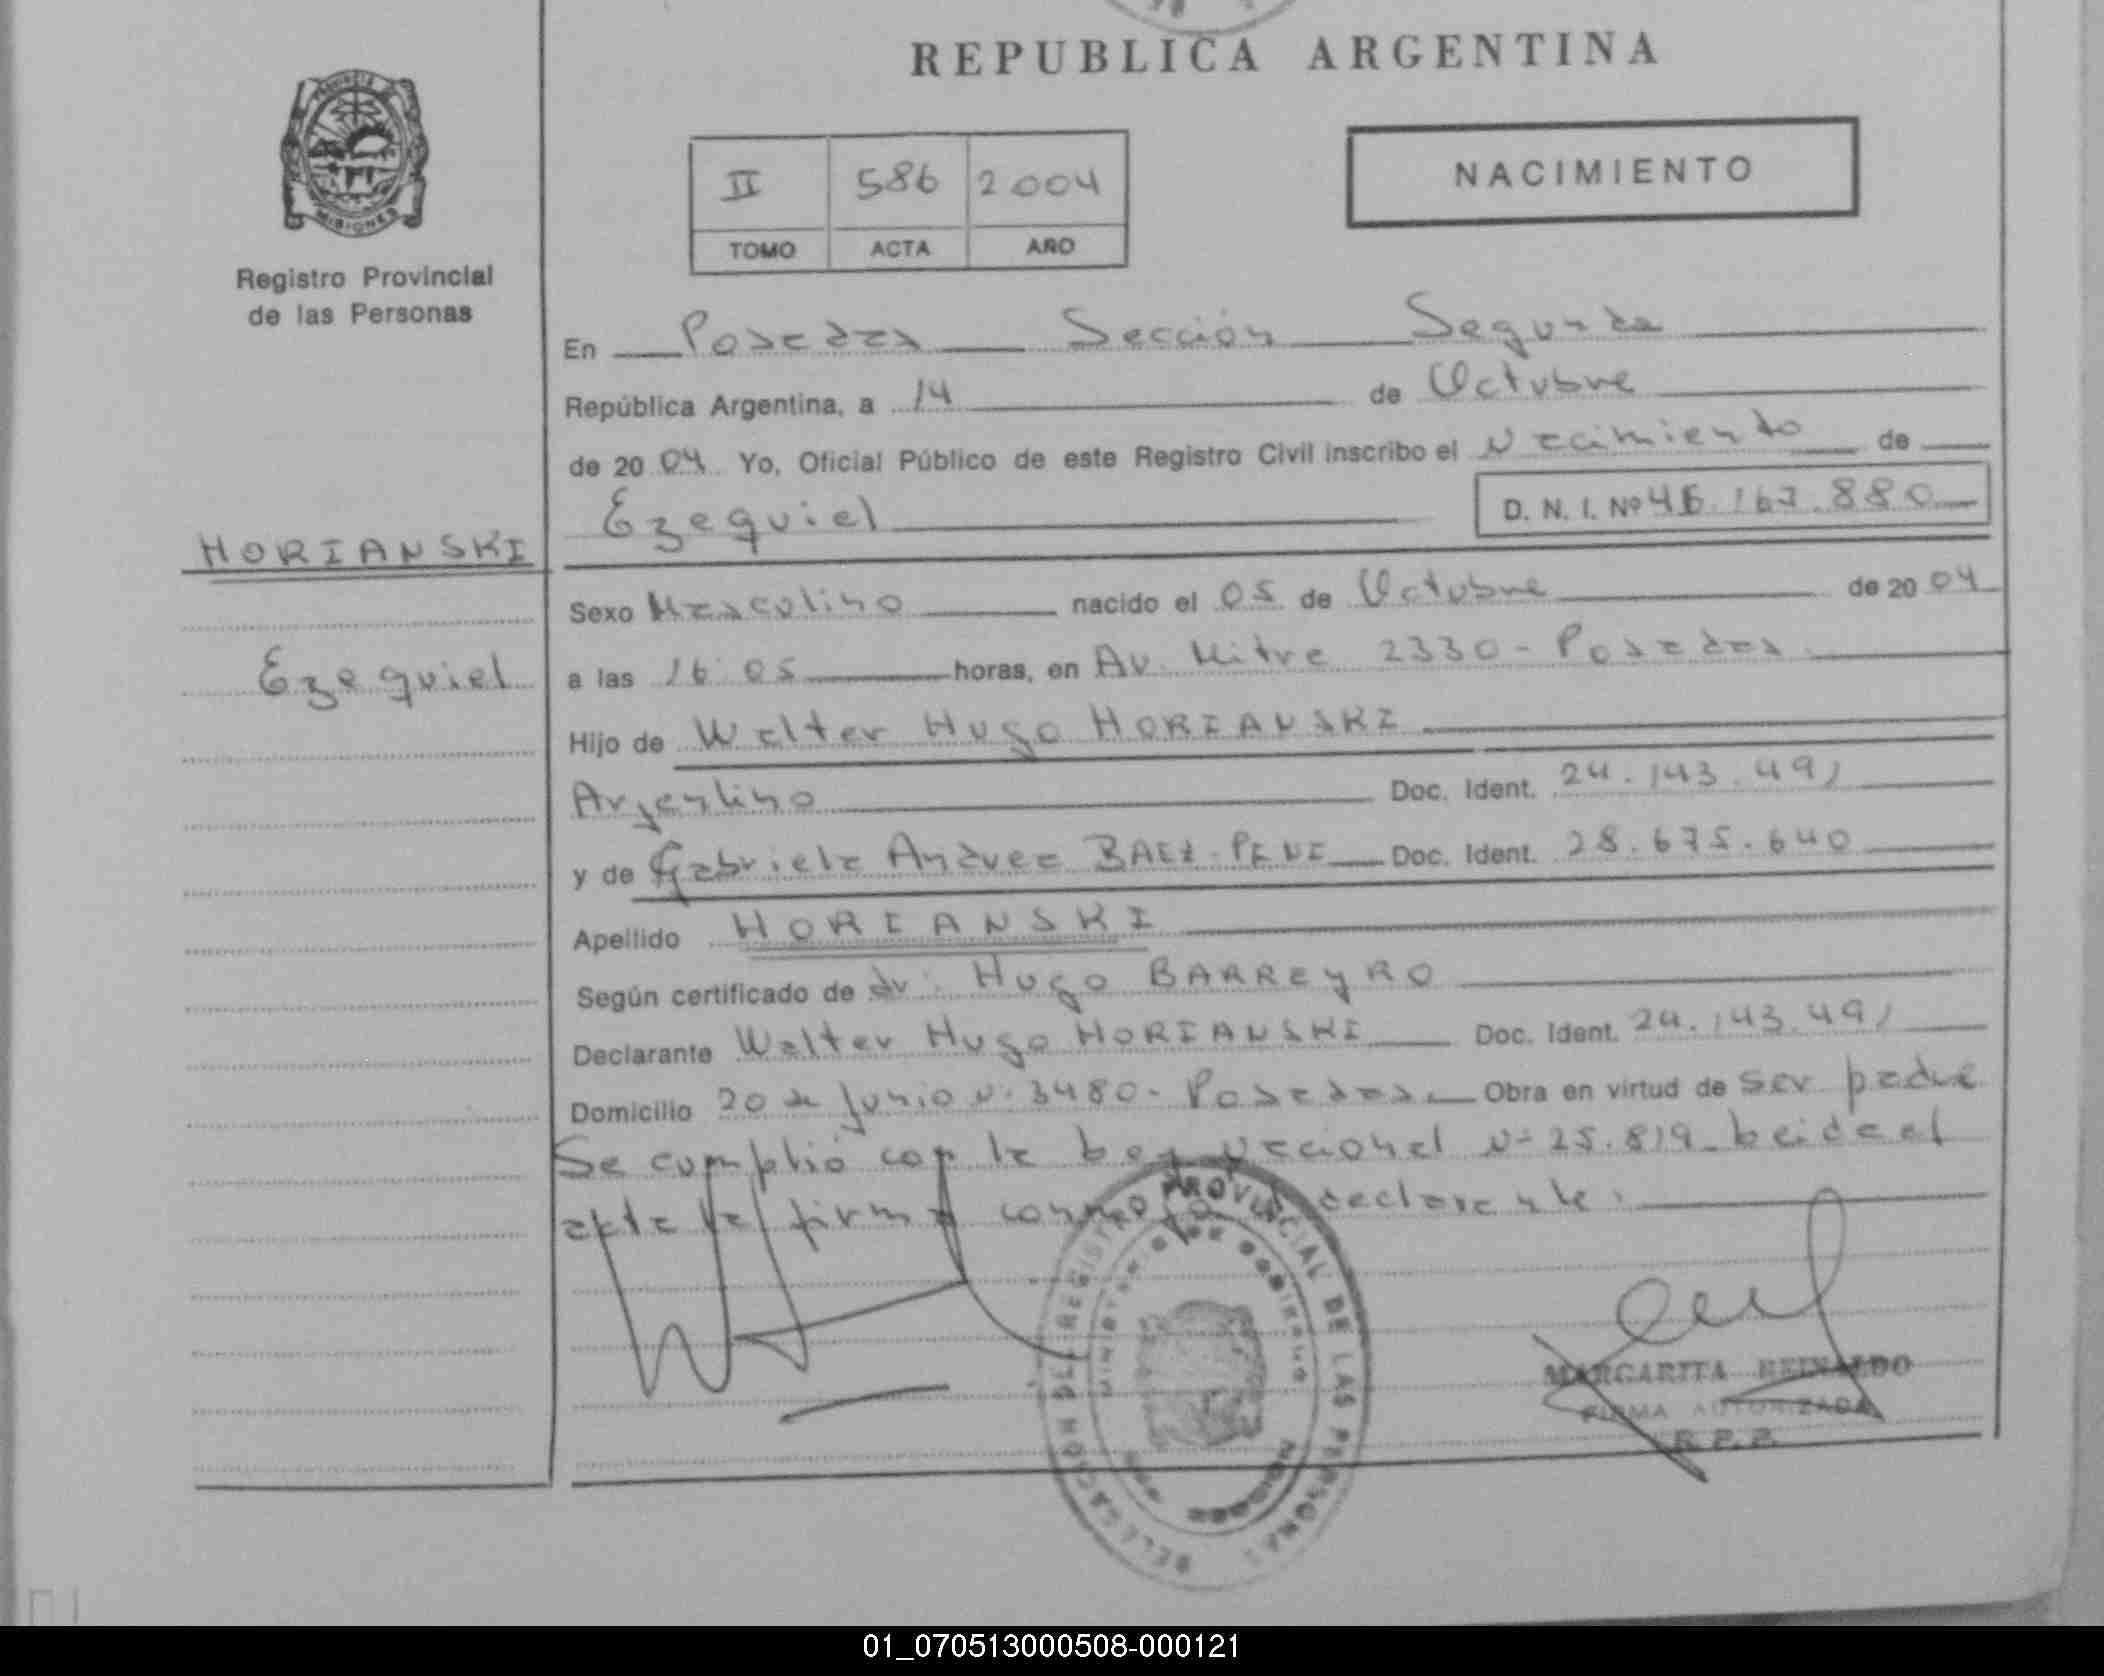 REPUBLICA ARGENTINA
PROVINCIA
MISIONES
Registro Provincial
de las Personas
II 586 2004
TOMO ACTA AÑO
NACIMIENTO
En Posadas Sección Segunda
República Argentina, a 14 de Octubre
de 20 04 Yo, Oficial Público de este Registro Civil inscribo el Nacimiento de
Ezequiel D. N. I. Nº 46.167.880
HORIANSKI
Ezequiel
Sexo Masculino nacido el 05 de Octubre de 20 04
a las 16:05 horas, en Av. Mitre 2330 - Posadas
Hijo de Walter Hugo HORIANSKI
Argentino Doc. Ident. 24.143.491
y de Gabriela Andrea BAEZ Doc. Ident. 28.675.640
Apellido HORIANSKI
Según certificado de dr. Hugo BARREYRO
Declarante Walter Hugo HORIANSKI Doc. Ident. 24.143.491
Domicilio 20 de Junio Nº 3480 - Posadas Obra en virtud de ser padre
Se cumplió con la Ley Nacional Nº 25.819 Leída el
acta la firma conmigo declarante.
DELEGACION DEL REGISTRO PROVINCIAL DE LAS PERSONAS
MINISTERIO DE GOBIERNO
MARGARITA REINALDO
FIRMA AUTORIZADA
R. P. P.
01_070513000508-000121